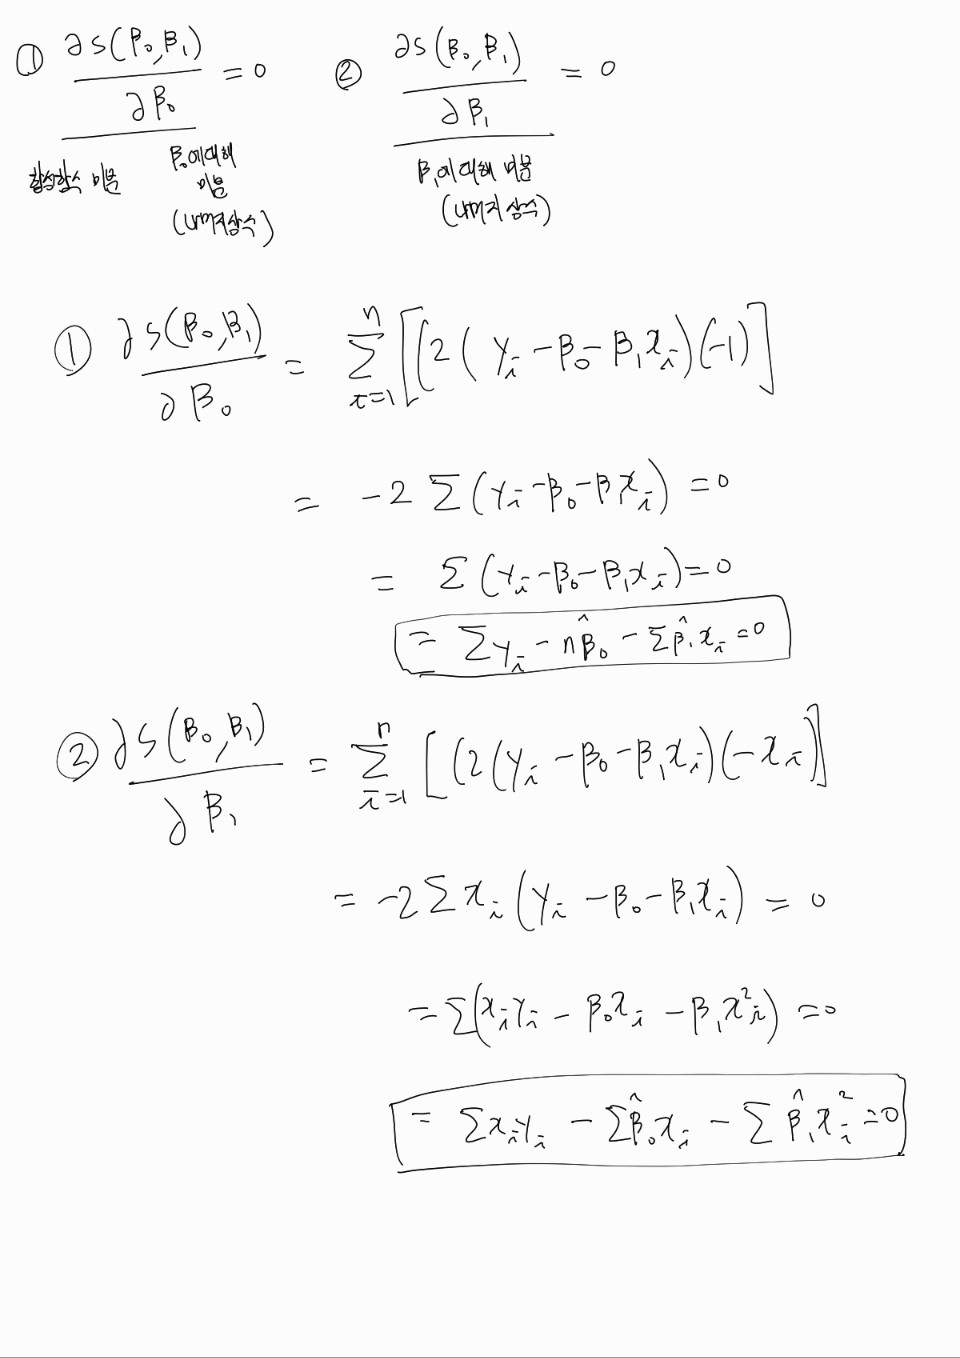 ① ∂S(β₀,β₁)/∂β₀ = 0 ② ∂S(β₀,β₁)/∂β₁ = 0
합성함수 미분 β₀에대해 미분 (나머지상수)
β₁에대해 미분 (나머지 상수)
① ∂S(β₀,β₁)/∂β₀ = Σⁿᵢ₌₁ [(2(yᵢ-β₀-β₁xᵢ)(-1)]
= -2 Σ(yᵢ-β₀-β₁xᵢ) = 0
= Σ(yᵢ-β₀-β₁xᵢ) = 0
= Σyᵢ - nβ̂₀ - Σβ̂₁xᵢ = 0
② ∂S(β₀,β₁)/∂β₁ = Σⁿᵢ₌₁ [(2(yᵢ-β₀-β₁xᵢ)(-xᵢ)]
= -2Σxᵢ(yᵢ-β₀-β₁xᵢ) = 0
= Σ(xᵢyᵢ - β₀xᵢ - β₁x²ᵢ) = 0
= Σxᵢyᵢ - Σβ̂₀xᵢ - Σβ̂₁xᵢ² = 0